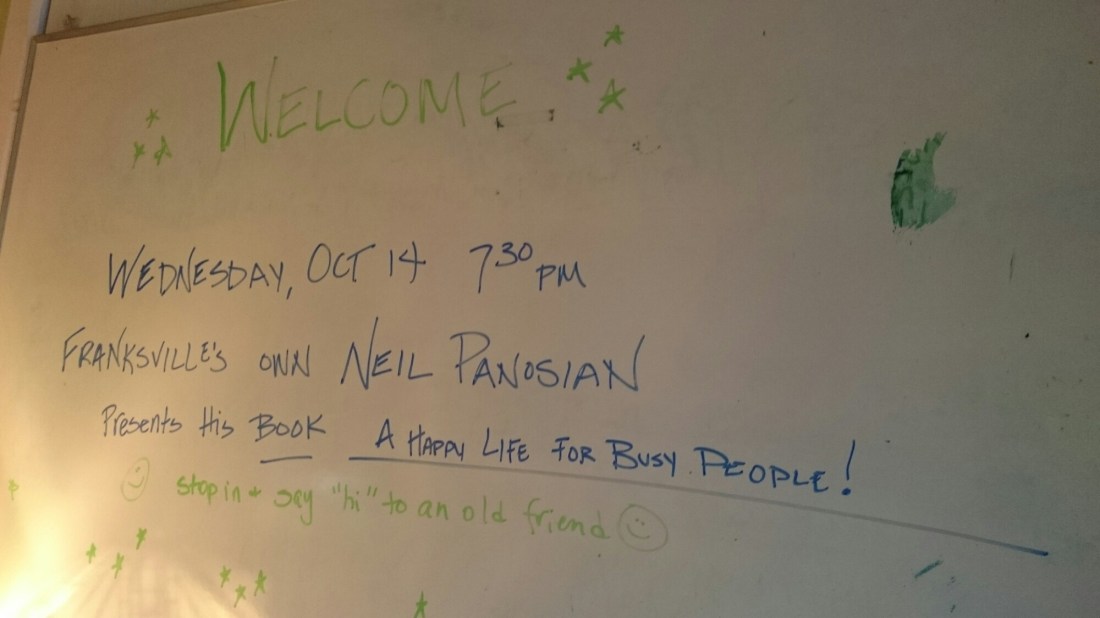 WELCOME
WEDNESDAY, OCT 14 7 30 PM
FRANKSVILLE'S OWN NEIL PANOSIAN
Presents His BOOK A HAPPY LIFE FOR BUSY PEOPLE!
stop in + say "hi" to an old friend